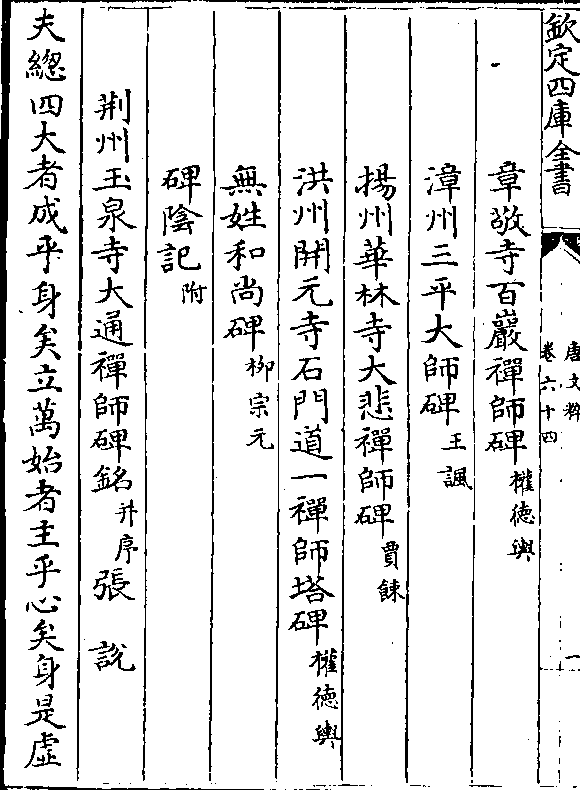 欽定四庫全書
唐文粹
卷六十四
一
章敬寺百巖禪師碑 權德輿
漳州三平大師碑 王諷
揚州華林寺大悲禪師碑 賈餗
洪州開元寺石門道一禪師塔碑 權德輿
無姓和尚碑 柳宗元
碑陰記 附
荆州玉泉寺大通禪師碑銘 并序 張說
夫總四大者成乎身矣立萬始者主乎心矣身是虛